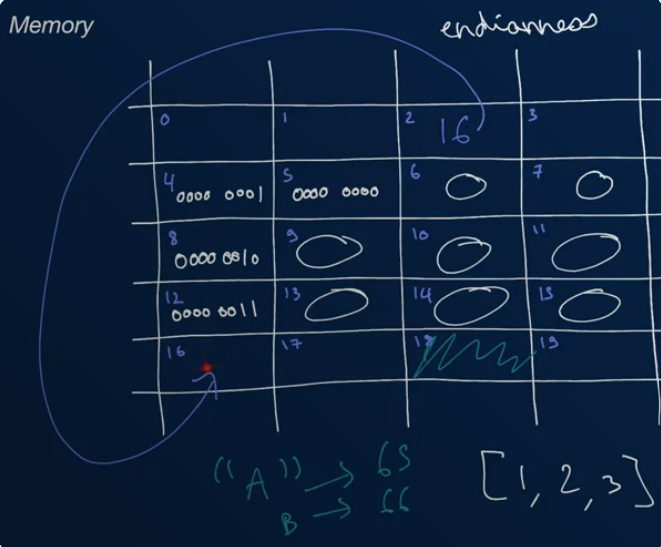 Memory
endianness
0 1 2 16 3
4 0000 0001 5 0000 0000 6 0 7 0
8 0000 0010 9 0 10 0 11 0
12 0000 0011 13 0 14 0 15 0
16 17 18 19
"A" → 65
B → 66
[1, 2, 3]